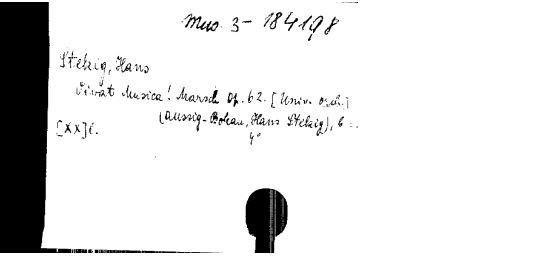 Mus. 3-184198
Stelzig, Hans
Vivat Musica! Marsch Op. 62. [Univ. orch.]
(Aussig-Bokau, Hans Stelzig), 6
[XX] č.
4°